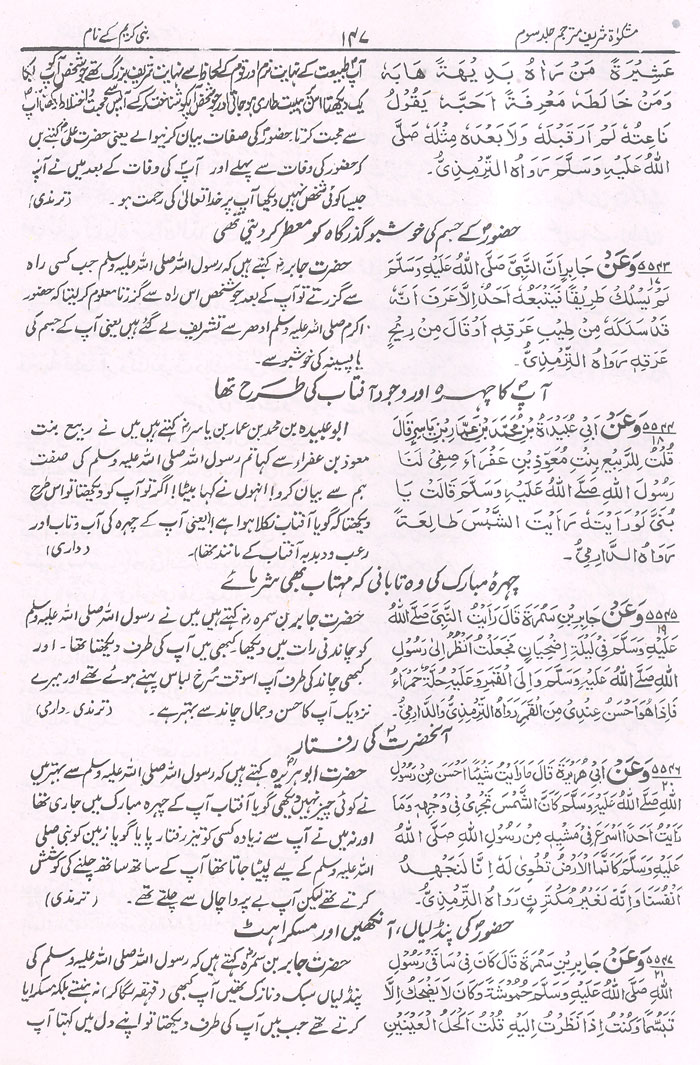 مشکوٰۃ شریف مترجم جلد سوم
۱۴۷
نبی کریم کے نام
عَشِيْرَةً مَنْ رَاٰهُ بَدِيْهَةً هَابَهٗ
وَمَنْ خَالَطَهٗ مَعْرِفَةً اَحَبَّهٗ يَقُوْلُ
نَاعِتُهٗ لَمْ اَرَ قَبْلَهٗ وَلَا بَعْدَهٗ مِثْلَهٗ صَلَّى
اللهُ عَلَيْهِ وَسَلَّمَ رَوَاهُ التِّرْمِذِيُّ۔
آپ طبیعت کے نہایت نرم اور قوم کے لحاظ سے نہایت شریف بزرگ تھے جو شخص آپ کو ایکا
یک دیکھتا اس پر ہیبت طاری ہو جاتی اور جو شخص آپ کو شناخت کر کے آپ سے صحبت و اختلاط رکھتا آپ
سے محبت کرتا۔ حضور کی صفات بیان کرنیوالے یعنی حضرت علی کہتے ہیں
کہ حضور کی وفات سے پہلے اور آپ کی وفات کے بعد میں نے آپ
جیسا کوئی شخص نہیں دیکھا آپ پر خدا تعالیٰ کی رحمت ہو۔ (ترمذی)
حضورؐ کے جسم کی خوشبو گذرگاہ کو معطر کر دیتی تھی
۵۵۴۳ ۱۷ وَعَنْ جَابِرٍ اَنَّ النَّبِيَّ صَلَّى اللهُ عَلَيْهِ وَسَلَّمَ
لَمْ يَسْلُكْ طَرِيْقًا فَيَتْبَعُهٗ اَحَدٌ اِلَّا عَرَفَ اَنَّهٗ
قَدْ سَلَكَهٗ مِنْ طِيْبِ عَرَقِهٖ اَوْ قَالَ مِنْ رِيْحِ
عَرَقِهٖ رَوَاهُ التِّرْمِذِيُّ۔
حضرت جابرؓ کہتے ہیں کہ رسول اللہ صلی اللہ علیہ وسلم جب کسی راہ
سے گزرتے تو آپ کے بعد جو شخص اس راہ سے گزرتا معلوم کر لیتا کہ حضور
اکرم صلی اللہ علیہ وسلم ادھر سے تشریف لے گئے ہیں یعنی آپ کے جسم کی
یا پسینہ کی خوشبو سے۔
آپؐ کا چہرہ اور وجود آفتاب کی طرح تھا
۵۵۴۴ ۱۸ وَعَنْ اَبِيْ عُبَيْدَةَ بْنِ مُحَمَّدِ بْنِ عَمَّارِ بْنِ يَاسِرٍ قَالَ
قُلْتُ لِلرُّبَيِّعِ بِنْتِ مُعَوِّذِ بْنِ عَفْرَاءَ صِفِيْ لَنَا
رَسُوْلَ اللهِ صَلَّى اللهُ عَلَيْهِ وَسَلَّمَ قَالَتْ يَا
بُنَيَّ لَوْ رَاَيْتَهٗ رَاَيْتَ الشَّمْسَ طَالِعَةً
رَوَاهُ الدَّارِمِيُّ۔
ابو عبیدہ بن محمد بن عمار بن یاسرؓ کہتے ہیں میں نے ربیع بنت
معوذ بن عفراء سے کہا تم رسول اللہ صلی اللہ علیہ وسلم کی صفت
ہم سے بیان کرو! انہوں نے کہا بیٹا! اگر تو آپ کو دیکھتا تو اس طرح
دیکھتا کہ گویا آفتاب نکلا ہوا ہے! (یعنی آپ کے چہرہ کی آب و تاب اور
رعب و دبدبہ آفتاب کے مانند تھا)۔ (دارمی)
چہرۂ مبارک کی وہ تابانی کہ مہتاب بھی شرمائے
۵۵۴۵ ۱۹ وَعَنْ جَابِرِ بْنِ سَمُرَةَ قَالَ رَاَيْتُ النَّبِيَّ صَلَّى اللهُ
عَلَيْهِ وَسَلَّمَ فِيْ لَيْلَةٍ اِضْحِيَانٍ فَجَعَلْتُ اَنْظُرُ اِلٰى رَسُوْلِ
اللهِ صَلَّى اللهُ عَلَيْهِ وَسَلَّمَ وَاِلَى الْقَمَرِ وَعَلَيْهِ حُلَّةٌ حَمْرَاءُ
فَاِذَا هُوَ اَحْسَنُ عِنْدِيْ مِنَ الْقَمَرِ رَوَاهُ التِّرْمِذِيُّ وَالدَّارِمِيُّ۔
حضرت جابر بن سمرہؓ کہتے ہیں میں نے رسول اللہ صلی اللہ علیہ وسلم
کو چاندنی رات میں دیکھا کبھی میں آپ کی طرف دیکھتا تھا۔ اور
کبھی چاند کی طرف آپ اسوقت سُرخ لباس پہنے ہوئے تھے اور میرے
نزدیک آپ کا حسن و جمال چاند سے بہتر ہے۔ (ترمذی۔ دارمی)
آنحضرتؐ کی رفتار
۵۵۴۶ ۲۰ وَعَنْ اَبِيْ هُرَيْرَةَ قَالَ مَا رَاَيْتُ شَيْئًا اَحْسَنَ مِنْ رَسُوْلِ
اللهِ صَلَّى اللهُ عَلَيْهِ وَسَلَّمَ كَاَنَّ الشَّمْسَ تَجْرِيْ فِيْ وَجْهِهٖ وَمَا
رَاَيْتُ اَحَدًا اَسْرَعَ فِيْ مَشْيِهٖ مِنْ رَسُوْلِ اللهِ صَلَّى اللهُ
عَلَيْهِ وَسَلَّمَ كَاَنَّمَا الْاَرْضُ تُطْوٰى لَهٗ اِنَّا لَنُجْهِدُ
اَنْفُسَنَا وَاِنَّهٗ لَغَيْرُ مُكْتَرِثٍ رَوَاهُ التِّرْمِذِيُّ۔
حضرت ابوہریرہؓ کہتے ہیں کہ رسول اللہ صلی اللہ علیہ وسلم سے بہتر میں
نے کوئی چیز نہیں دیکھی گویا آفتاب آپ کے چہرہ مبارک میں جاری تھا
اور نہ میں نے آپ سے زیادہ کسی کو تیز رفتار پایا گویا زمین کو نبی صلی
اللہ علیہ وسلم کے لیے لپیٹا جاتا تھا آپ کے ساتھ ساتھ چلنے کی کوشش
کرتے تھے لیکن آپ بے پروا چال سے چلتے تھے۔ (ترمذی)
حضورؐ کی پنڈلیاں، آنکھیں اور مسکراہٹ
۵۵۴۷ ۲۱ وَعَنْ جَابِرِ بْنِ سَمُرَةَ قَالَ كَانَ فِيْ سَاقَيْ رَسُوْلِ
اللهِ صَلَّى اللهُ عَلَيْهِ وَسَلَّمَ حُمُوْشَةٌ وَكَانَ لَا يَضْحَكُ اِلَّا
تَبَسُّمًا وَكُنْتُ اِذَا نَظَرْتُ اِلَيْهِ قُلْتُ اَكْحَلُ الْعَيْنَيْنِ
حضرت جابر بن سمرہؓ کہتے ہیں کہ رسول اللہ صلی اللہ علیہ وسلم کی
پنڈلیاں سبک و نازک تھیں آپ کبھی (قہقہہ لگا کر) نہ ہنستے بلکہ مسکرایا
کرتے تھے جب میں آپ کی طرف دیکھتا تو اپنے دل میں کہتا آپ